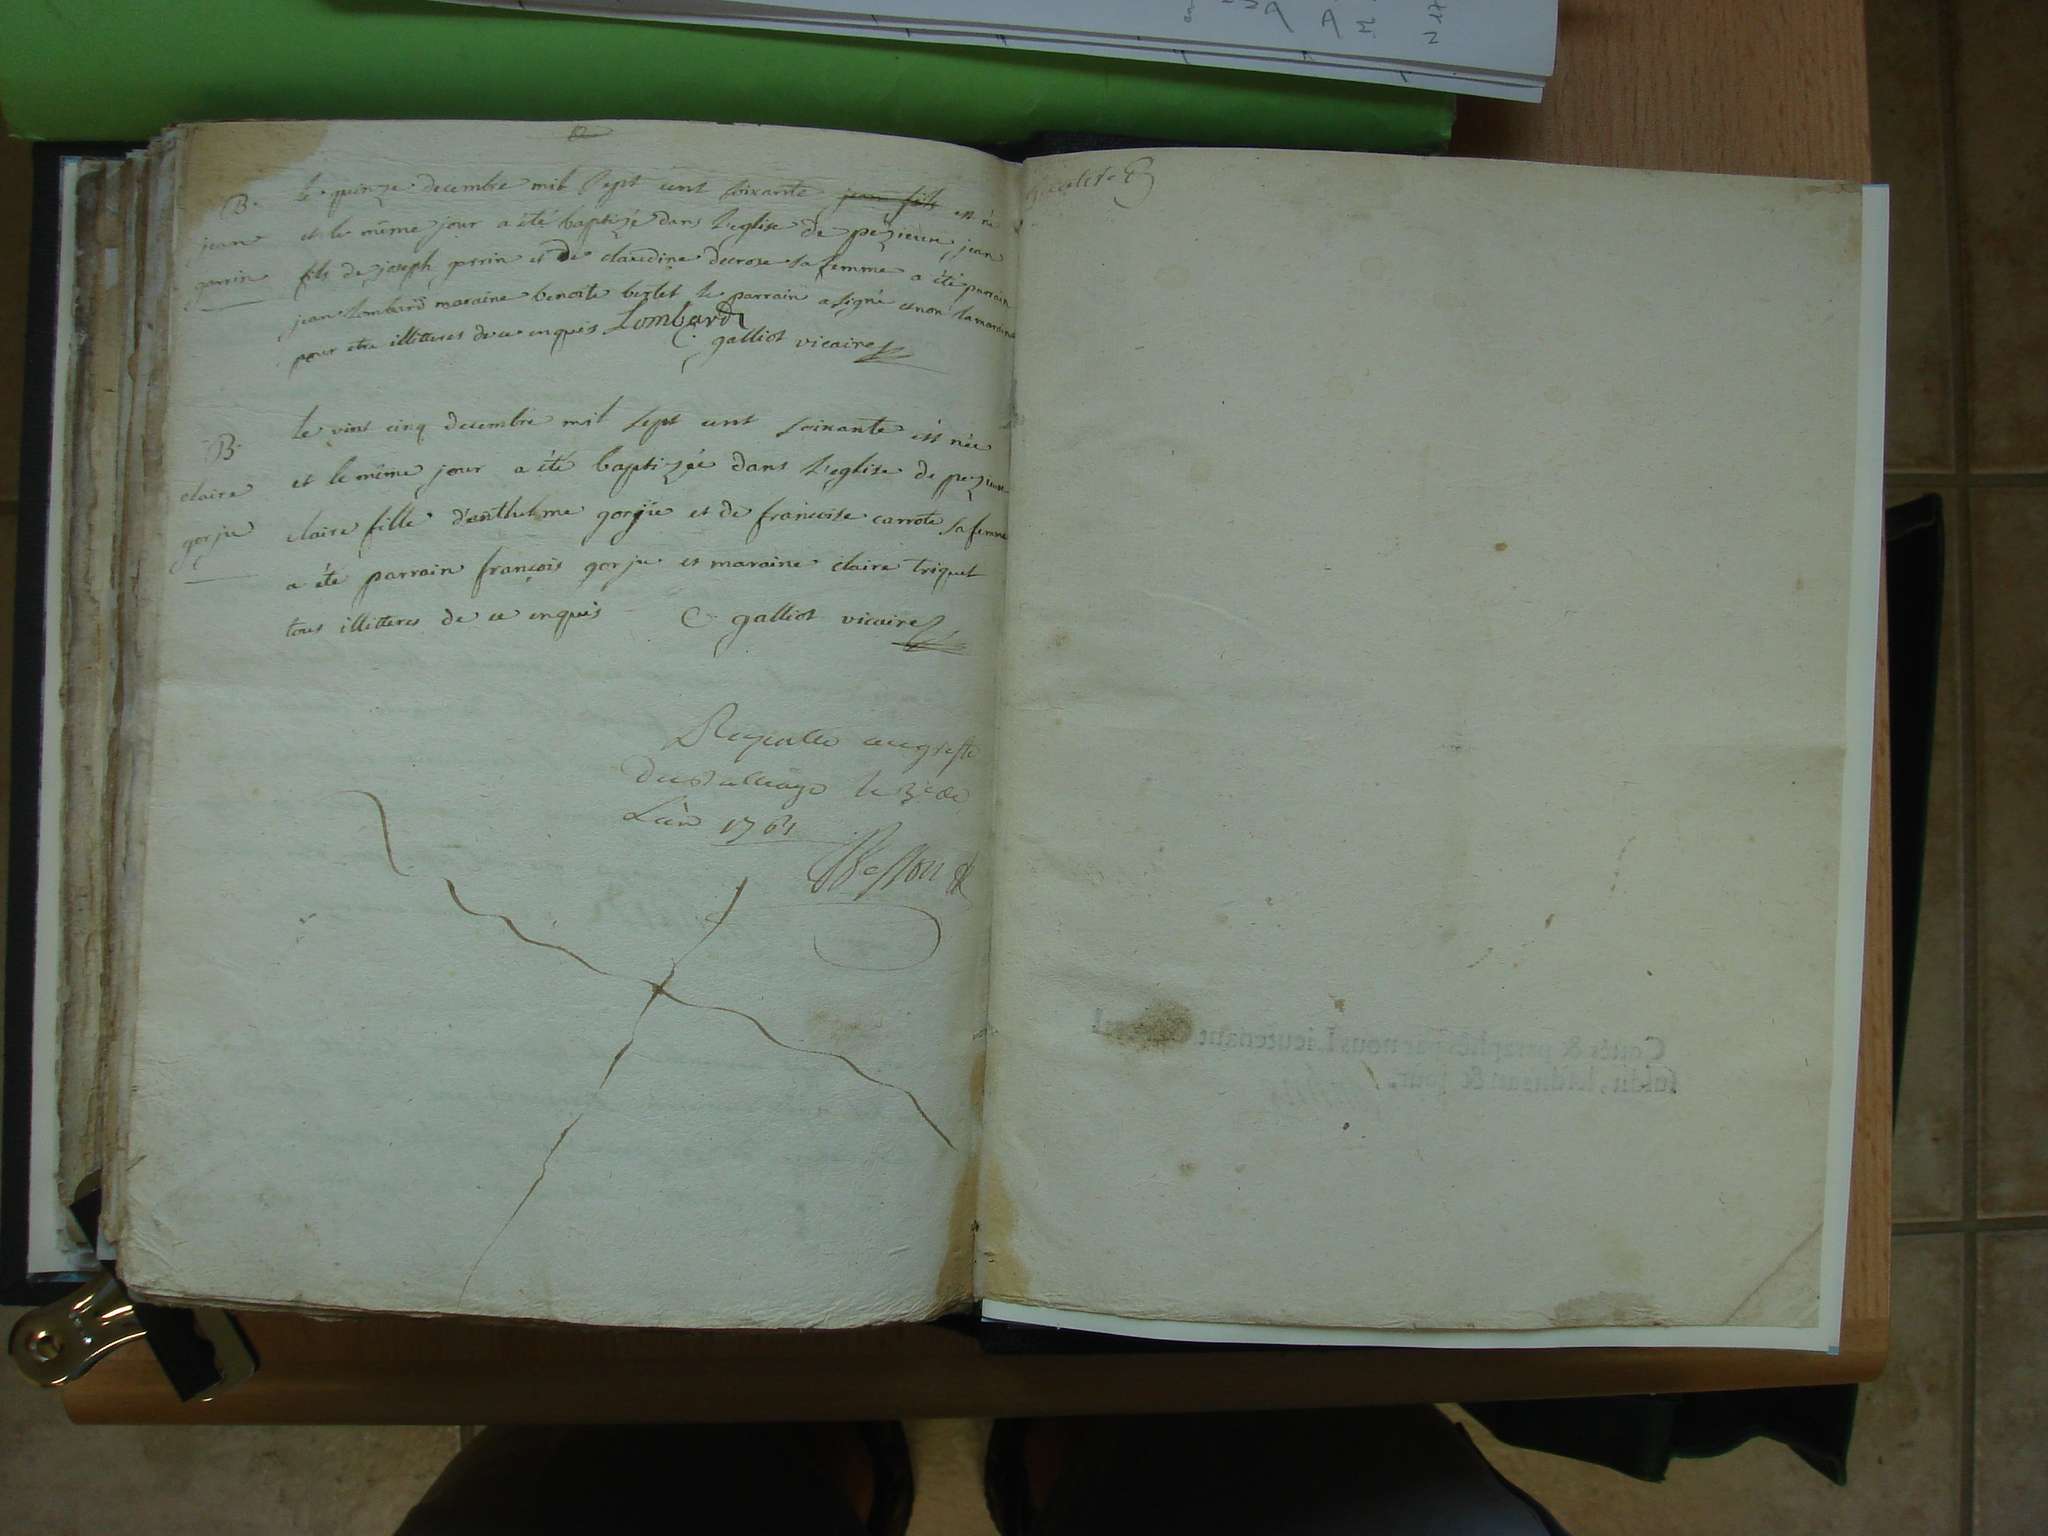 B.
jean
garrin
le quinze decembre mil sept cent soixante jean fils est né
et le même jour a été baptizé dans l'eglise de pezieux jean
fils de joseph garrin et de claudine decroze sa femme a été parrain
jean Lombard maraine benoite berlet le parrain a signé et non la maraine
pour etre illitteres de ce enquis Lombard
C. galliot vicaire
B.
claire
gorju
le vint cinq decembre mil sept cent soixante est née
et le même jour a été baptizée dans l'eglise de pezieux
claire fille d'anthelme gorju et de francoise carrote sa femme
a été parrain françois gorju et maraine claire triquet
tous illitteres de ce enquis C galliot vicaire
au greffe
du Balliage le
1761
Besson
Cottés & paraphés par nous Lieutenant
susdits, lesdits an & jour.